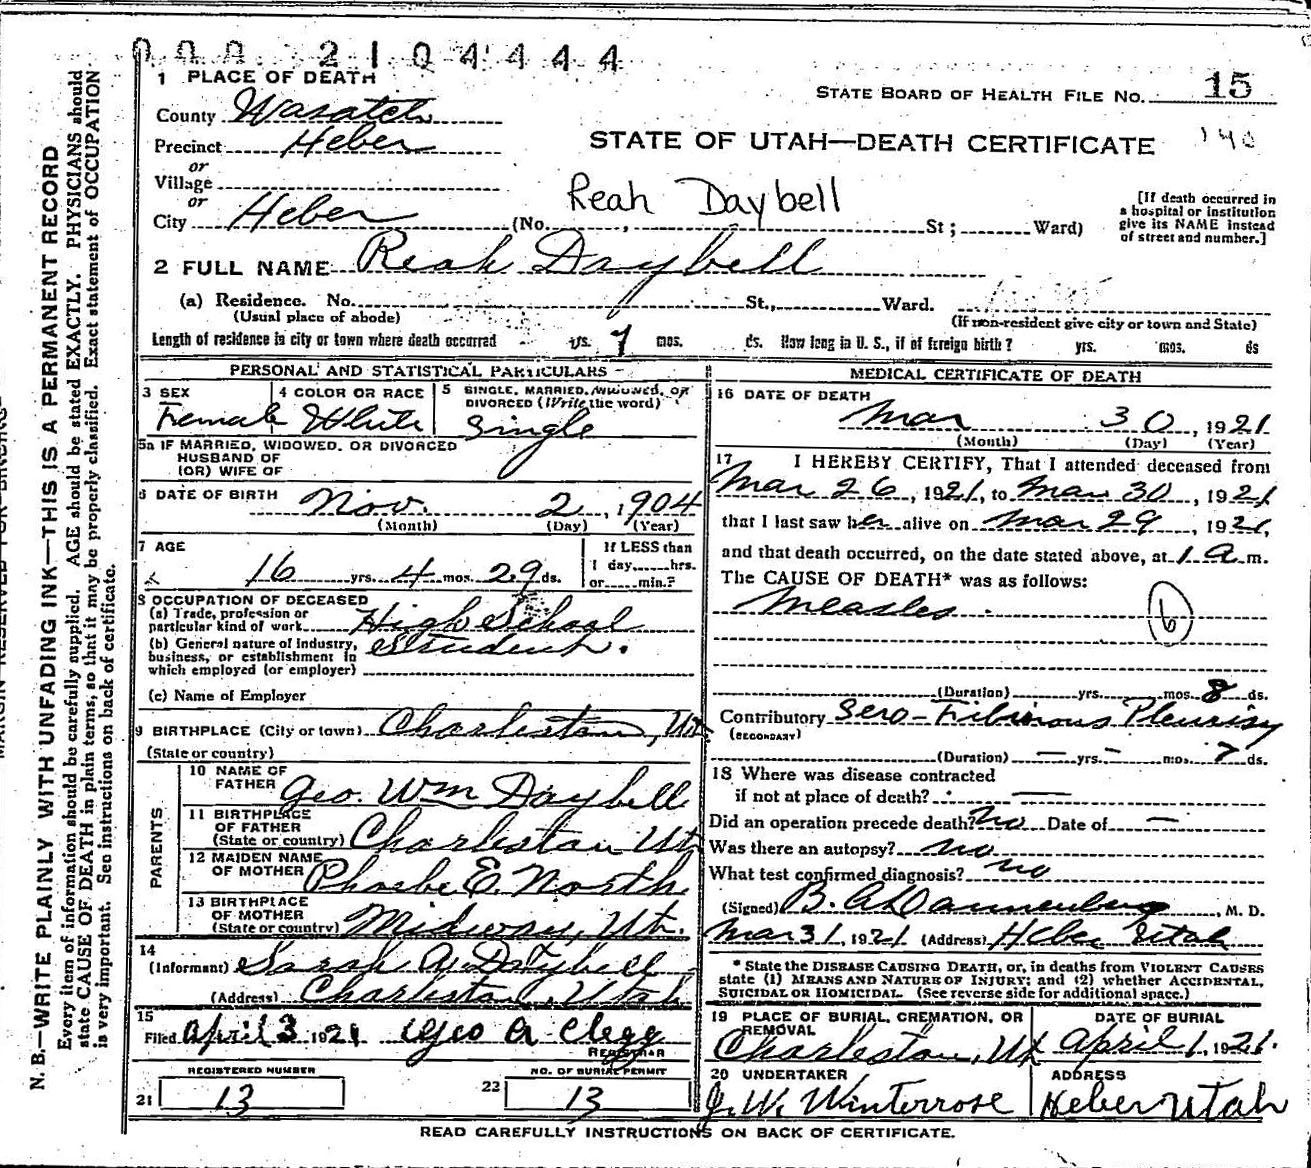 000 2104444
1 PLACE OF DEATH
STATE BOARD OF HEALTH FILE NO. 15
County Wasatch
STATE OF UTAH—DEATH CERTIFICATE 140
Precinct Heber
or
Village
or
Reah Daybell
City Heber (No. , St; Ward)
[If death occurred in
a hospital or institution
give its NAME instead
of street and number.]
2 FULL NAME Reah Daybell
(a) Residence. No. St., Ward.
(Usual place of abode)
(If non-resident give city or town and State)
Length of residence in city or town where death occurred yrs. 7 mos. ds. How long in U. S., if of foreign birth? yrs. mos. ds
PERSONAL AND STATISTICAL PARTICULARS
3 SEX Female
4 COLOR OR RACE White
5 SINGLE, MARRIED, WIDOWED, OR
DIVORCED (Write the word)
Single
5a IF MARRIED, WIDOWED, OR DIVORCED
HUSBAND OF
(OR) WIFE OF
6 DATE OF BIRTH Nov. 2, 1904
(Month) (Day) (Year)
7 AGE
16 yrs. 4 mos. 29 ds.
If LESS than
1 day,......hrs.
or......min.?
8 OCCUPATION OF DECEASED
(a) Trade, profession or
particular kind of work High School
(b) General nature of industry,
business, or establishment in
which employed (or employer)
Student.
(c) Name of Employer
9 BIRTHPLACE (City or town) Charleston, Ut.
(State or country)
PARENTS
10 NAME OF
FATHER Geo. Wm Daybell
11 BIRTHPLACE
OF FATHER
(State or country) Charleston Ut
12 MAIDEN NAME
OF MOTHER Phoebe E. North
13 BIRTHPLACE
OF MOTHER
(State or country) Midway, Ut.
14
(Informant) Sarah A Daybell
(Address) Charleston, Utah
15
Filed April 3 1921 Geo A Clegg
REGISTRAR
REGISTERED NUMBER
21 13
NO. OF BURIAL PERMIT
22 13
MEDICAL CERTIFICATE OF DEATH
16 DATE OF DEATH
Mar 30, 1921
(Month) (Day) (Year)
17 I HEREBY CERTIFY, That I attended deceased from
Mar 26, 1921, to Mar 30, 1921
that I last saw her alive on Mar 29, 1921,
and that death occurred, on the date stated above, at 1 a.m.
The CAUSE OF DEATH* was as follows:
Measles. 6
(Duration) yrs. mos 8 ds.
Contributory Sero-Fibrinous Pleurisy
(SECONDARY)
(Duration) — yrs. — mos. 7 ds.
18 Where was disease contracted
if not at place of death? —
Did an operation precede death? No Date of —
Was there an autopsy? no
What test confirmed diagnosis? no
(Signed) B. A. Dannenberg, M. D.
Mar 31, 1921 (Address) Heber Utah
* State the DISEASE CAUSING DEATH, or, in deaths from VIOLENT CAUSES
state (1) MEANS AND NATURE OF INJURY; and (2) whether ACCIDENTAL,
SUICIDAL OR HOMICIDAL. (See reverse side for additional space.)
19 PLACE OF BURIAL, CREMATION, OR
REMOVAL
Charleston, Ut
DATE OF BURIAL
April 1, 1921.
20 UNDERTAKER
J. W. Winterrose
ADDRESS
Heber Utah
READ CAREFULLY INSTRUCTIONS ON BACK OF CERTIFICATE.
N. B.—WRITE PLAINLY WITH UNFADING INK—THIS IS A PERMANENT RECORD
Every item of information should be carefully supplied. AGE should be stated EXACTLY. PHYSICIANS should
state CAUSE OF DEATH in plain terms, so that it may be properly classified. Exact statement of OCCUPATION
is very important. See instructions on back of certificate.